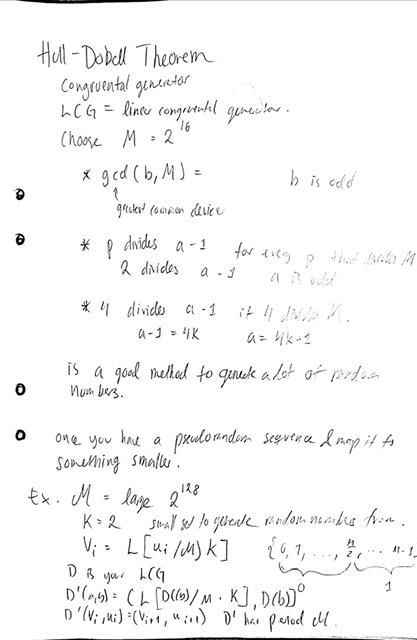 Hull-Dobell Theorem
Congruental generator
LCG = linear congruental generator.
Choose M = 2^16
* gcd(b, M) = b is odd
↑
greatest common device
* p divides a-1 for every p that divides M
2 divides a-1 a is odd
* 4 divides a-1 if 4 divides M.
a-1 = 4k a = 4k+1
is a good method to generate a lot of random
numbers.
once you have a pseudorandom sequence & map it to
something smaller.
Ex. M = large 2^128
K = 2 small set to generate random numbers from.
V_i = L[u_i/M)K] {0, 1, ..., M/2, ... M-1
0 1
D is your LCG
D'(a,b) = (L[D((b)/M · K], D(b)]
D'(V_i, u_i) = (V_i+1, u_i+1) D' has period M.